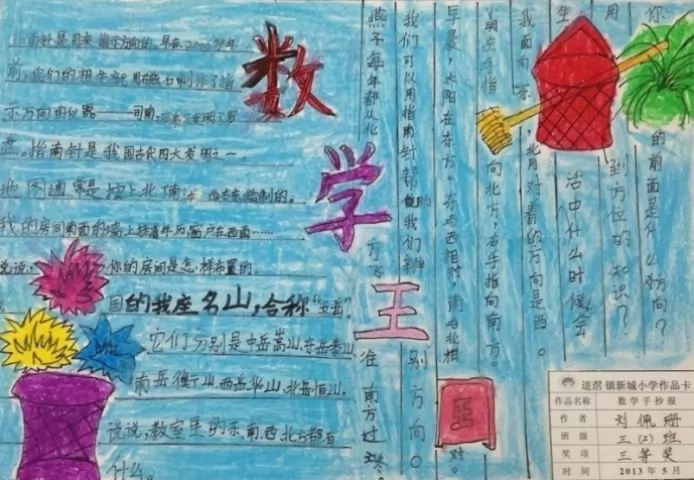 指南针是用来指示方向的。早在2000多年
前,我们的祖先就用磁石制作了指
示方向的仪器——司南,
盘。指南针是我国古代四大发明之一。
地图通常是按上北下南
绘制的。
我的房间南面的墙上挂着年历,窗户在西面……
说说,你的房间是怎样布置的。
国的我座名山,合称“五岳”。
它们分别是中岳嵩山、东岳泰山、
南岳衡山、西岳华山、北岳恒山。
说说,教室里的东、南、西、北方都有
什么。
数学王
燕子每年都从北方
准南方过冬。
我们可以用指南针帮助我们
别方向。
早晨,太阳在东方。东与西相对,南与北相对。
小明左手指向北方,右手指向南方。
我面向东,
北,月对着的方向是西。
生活中什么时候会
用到方位的知识?
你的前面是什么方向?
道滘镇新城小学作品卡
作品名称 数学手抄报
作者 刘佩珊
班级 三(2)班
奖项 三等奖
时间 2013年5月